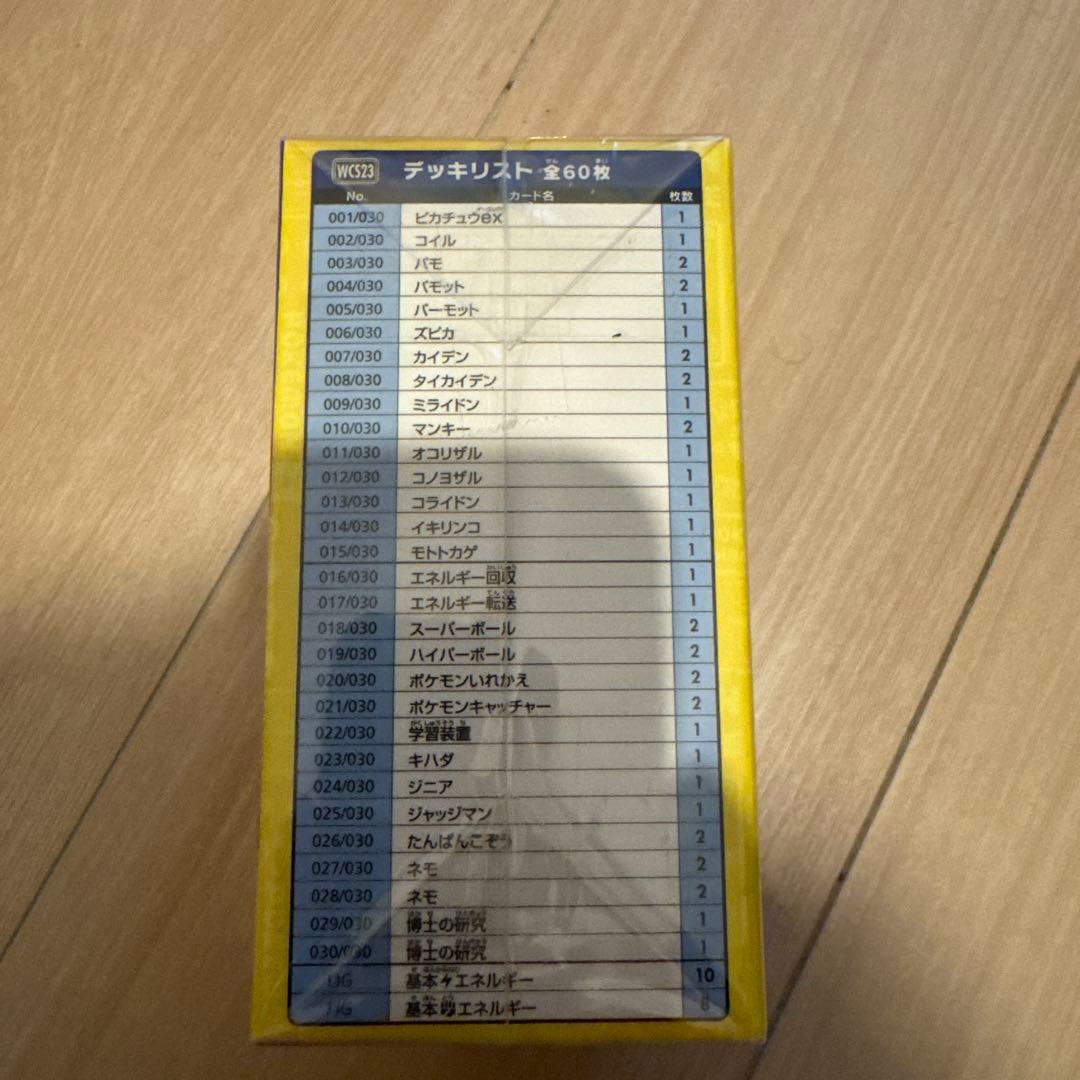 WCS23 デッキリスト 全60枚
No. カード名 枚数
001/030 ピカチュウex 1
002/030 コイル 1
003/030 パモ 2
004/030 パモット 2
005/030 パーモット 1
006/030 ズピカ 1
007/030 カイデン 2
008/030 タイカイデン 2
009/030 ミライドン 1
010/030 マンキー 2
011/030 オコリザル 1
012/030 コノヨザル 1
013/030 コライドン 1
014/030 イキリンコ 1
015/030 モトトカゲ 1
016/030 エネルギー回収 1
017/030 エネルギー転送 1
018/030 スーパーボール 2
019/030 ハイパーボール 2
020/030 ポケモンいれかえ 2
021/030 ポケモンキャッチャー 2
022/030 学習装置 1
023/030 キハダ 1
024/030 ジニア 1
025/030 ジャッジマン 1
026/030 たんぱんこぞう 2
027/030 ネモ 2
028/030 ネモ 2
029/030 博士の研究 1
030/030 博士の研究 1
基本エネルギー 10
基本闘エネルギー 8